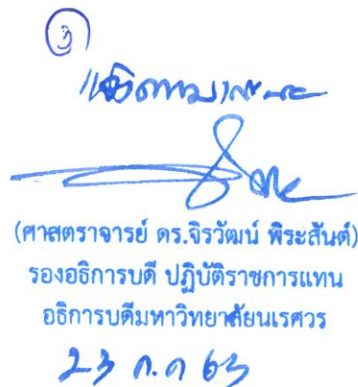 ๑
(ศาสตราจารย์ ดร.จิรวัฒน์ พิระสันต์)
รองอธิการบดี ปฏิบัติราชการแทน
อธิการบดีมหาวิทยาลัยนเรศวร
23 ก.ค 63